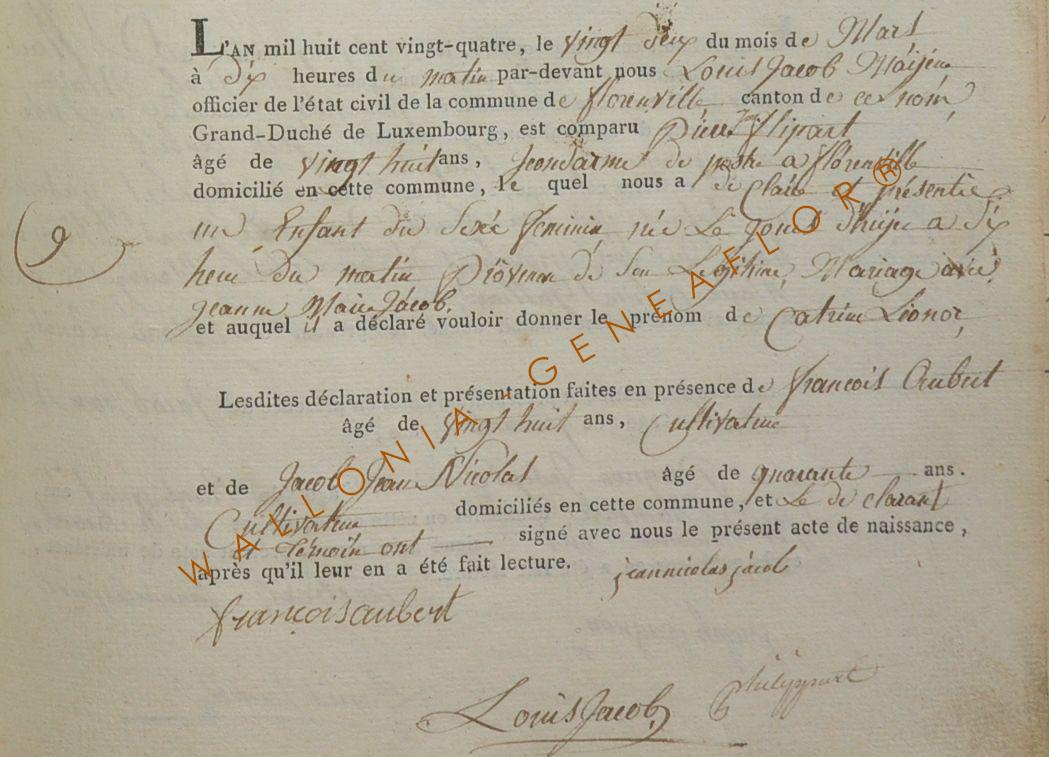 L'AN mil huit cent vingt-quatre, le vingt deux du mois de Mars
à dix heures du matin par-devant nous Louis Jacob
officier de l'état civil de la commune de florenville canton de ce nom
Grand-Duché de Luxembourg, est comparu flipart
âgé de vingt huit ans, de a florenville
domicilié en cette commune, le quel nous a de Claré et présentée
un Enfant du Sexe feminin née Le a dix
heur du matin de Son Legitime Mariage avec
jeanne Marie Jacob.
et auquel il a déclaré vouloir donner le prénom de Catrine Lionor
9
Lesdites déclaration et présentation faites en présence de françois Aubert
âgé de vingt huit ans, Cultivateur
et de Jacob Jean Nicolas âgé de quarante ans.
Cultivateur domiciliés en cette commune, et Le de clarant
et témoin ont signé avec nous le présent acte de naissance,
après qu'il leur en a été fait lecture. jeannicolas jacob
françoisaubert
Louis Jacob philippart
WALLONIA - GENEAFLOR®